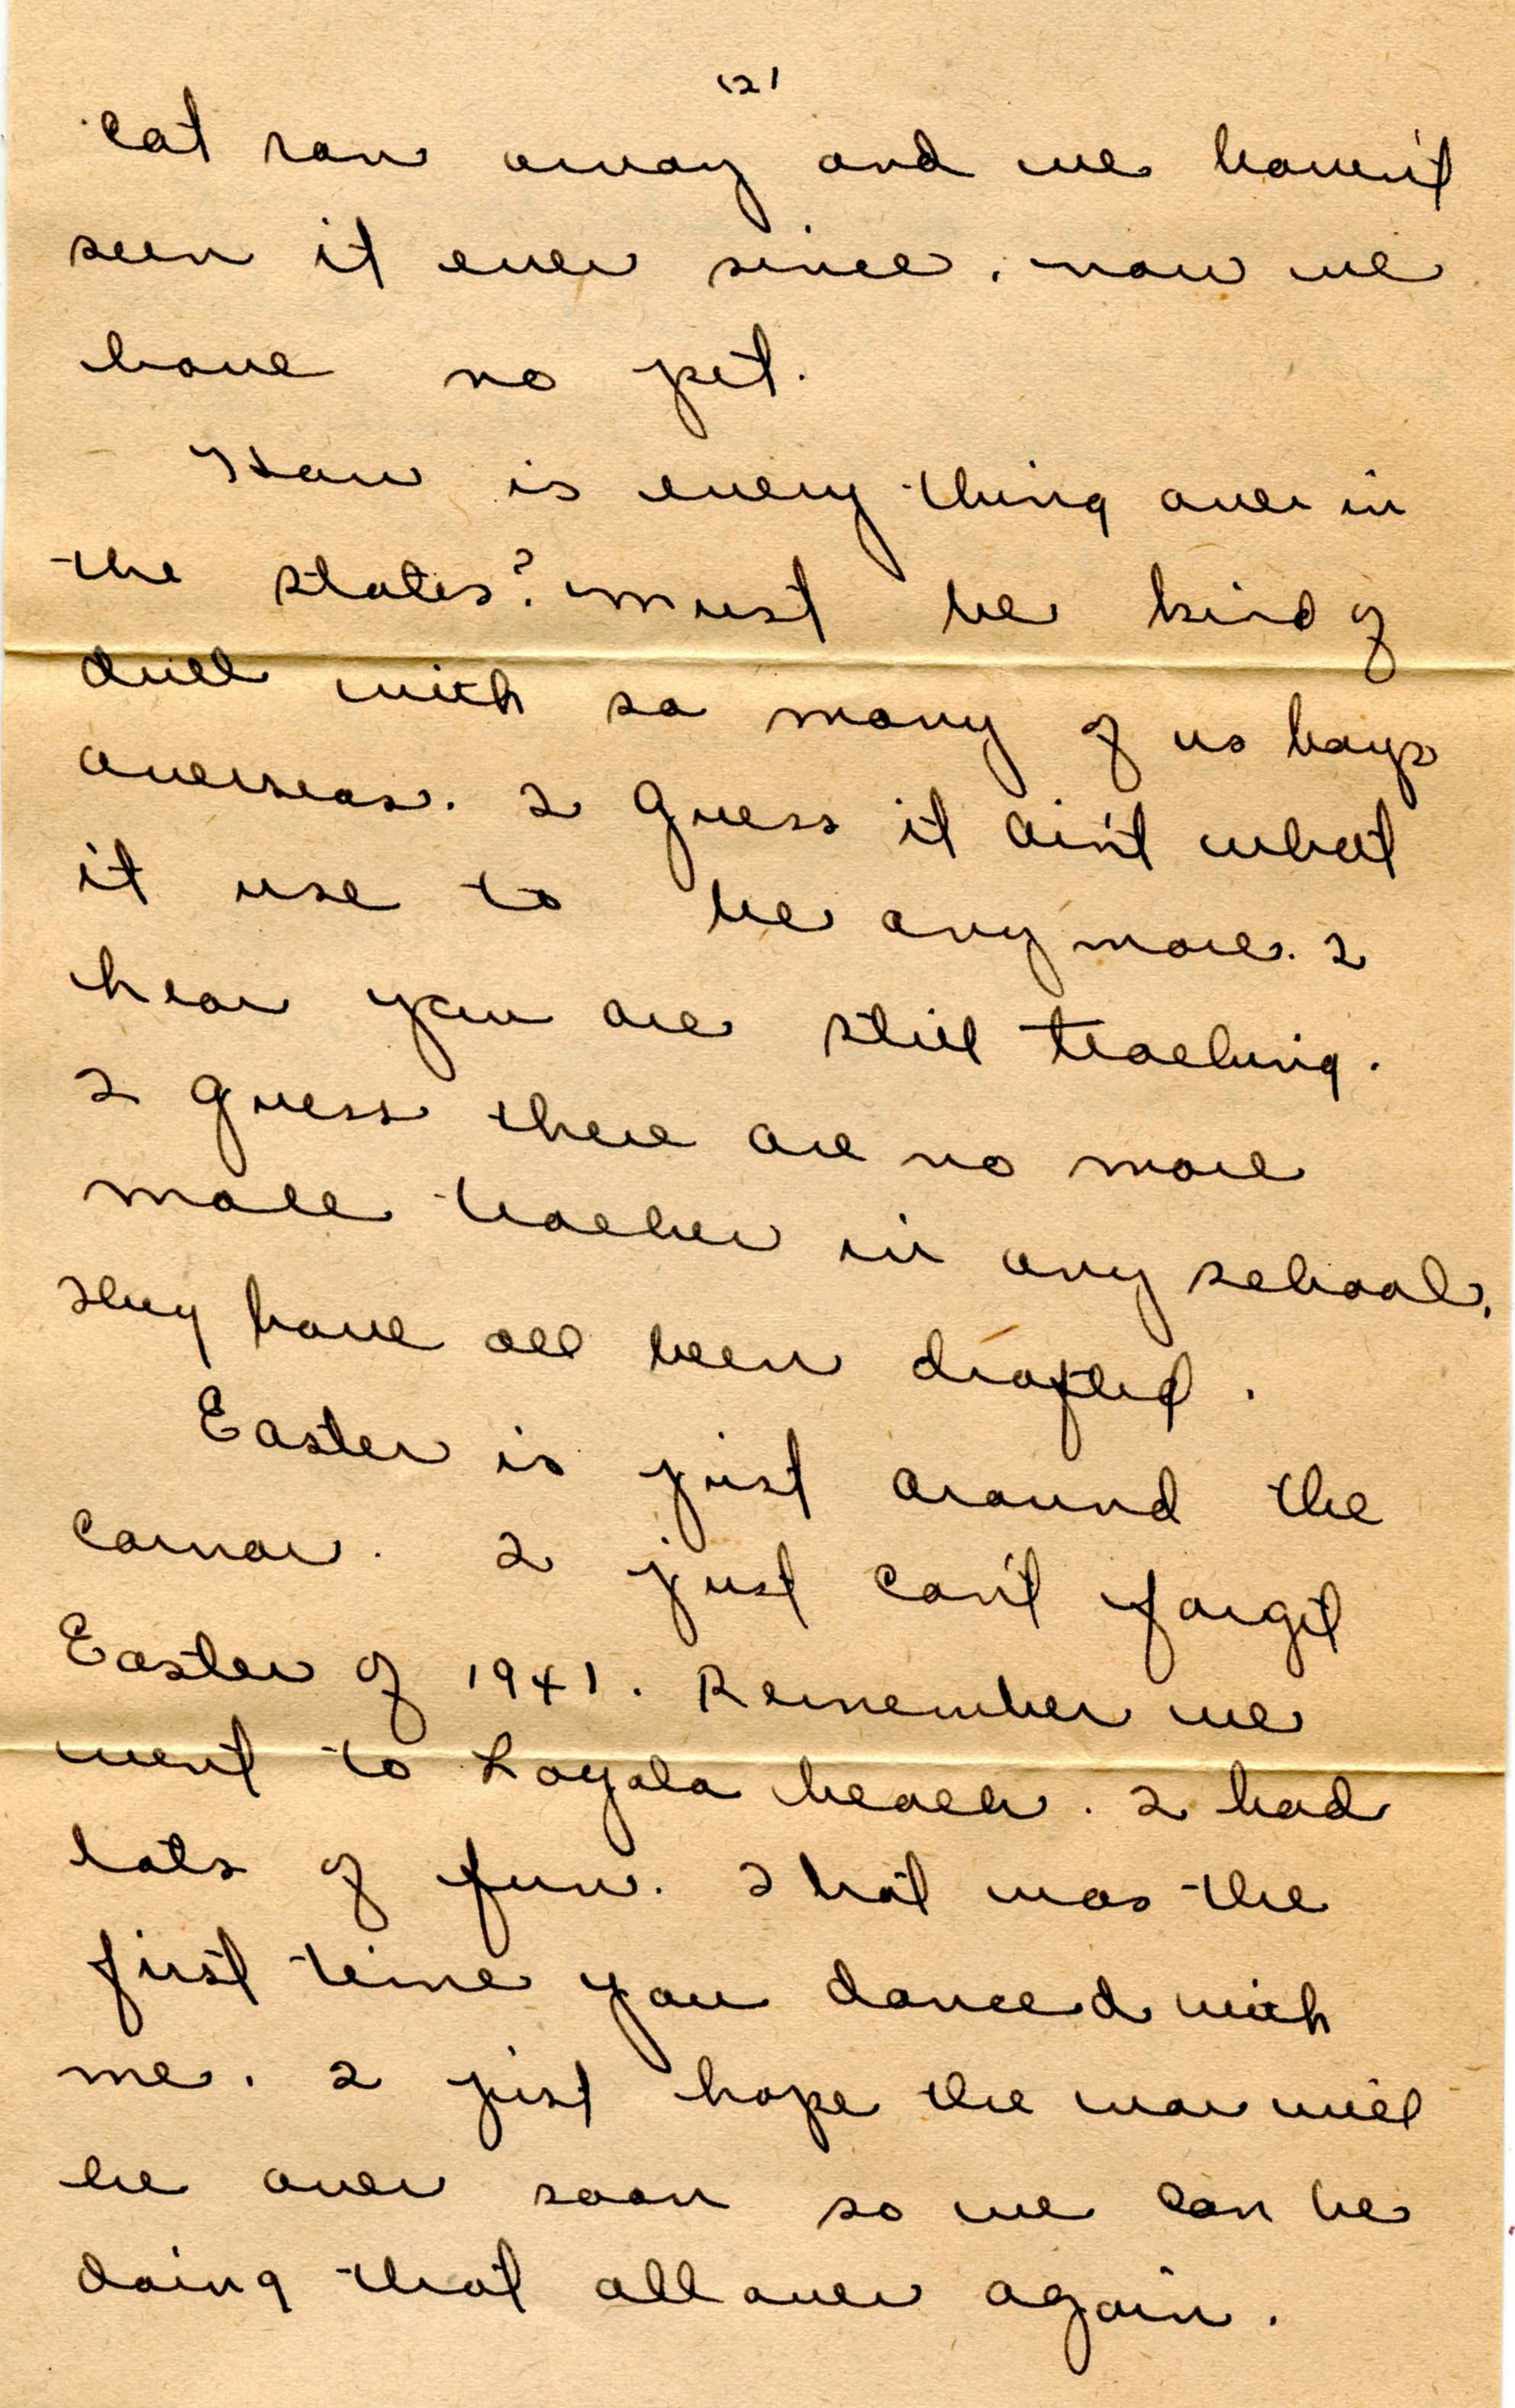 (2)
cat ran away and we haven't
seen it ever since. now we
have no pet.
How is every thing over in
the states? must be kind of
dull with so many of us boys
overseas. I guess it ain't what
it use to be any more. I
hear you are still teaching.
I guess there are no more
male teacher in any school.
They have all been drafted.
Easter is just around the
cornor. I just can't forget
Easter of 1941. Remember we
went to Loyola beach. I had
lots of fun. That was the
first time you danced with
me. I just hope the war will
be over soon so we can be
doing that all over again.